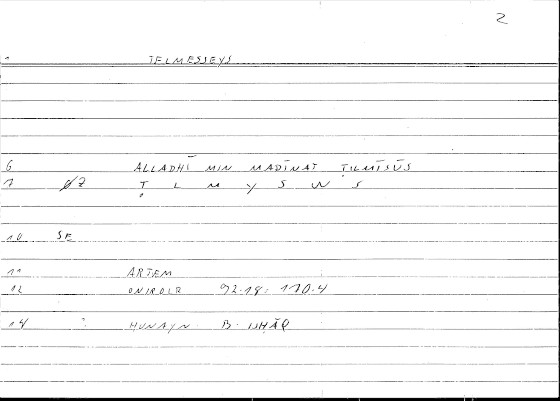 2
1 TELMESSEYS
6 ALLADHĪ MIN MADĪNAT ṬILMĪSŪS
7 Ø2 Ṭ L M Y S W S
10 SE
11 ARTEM
12 ONIROCR 92.18: 170.4
14 HUNAYN B. ISḤĀQ